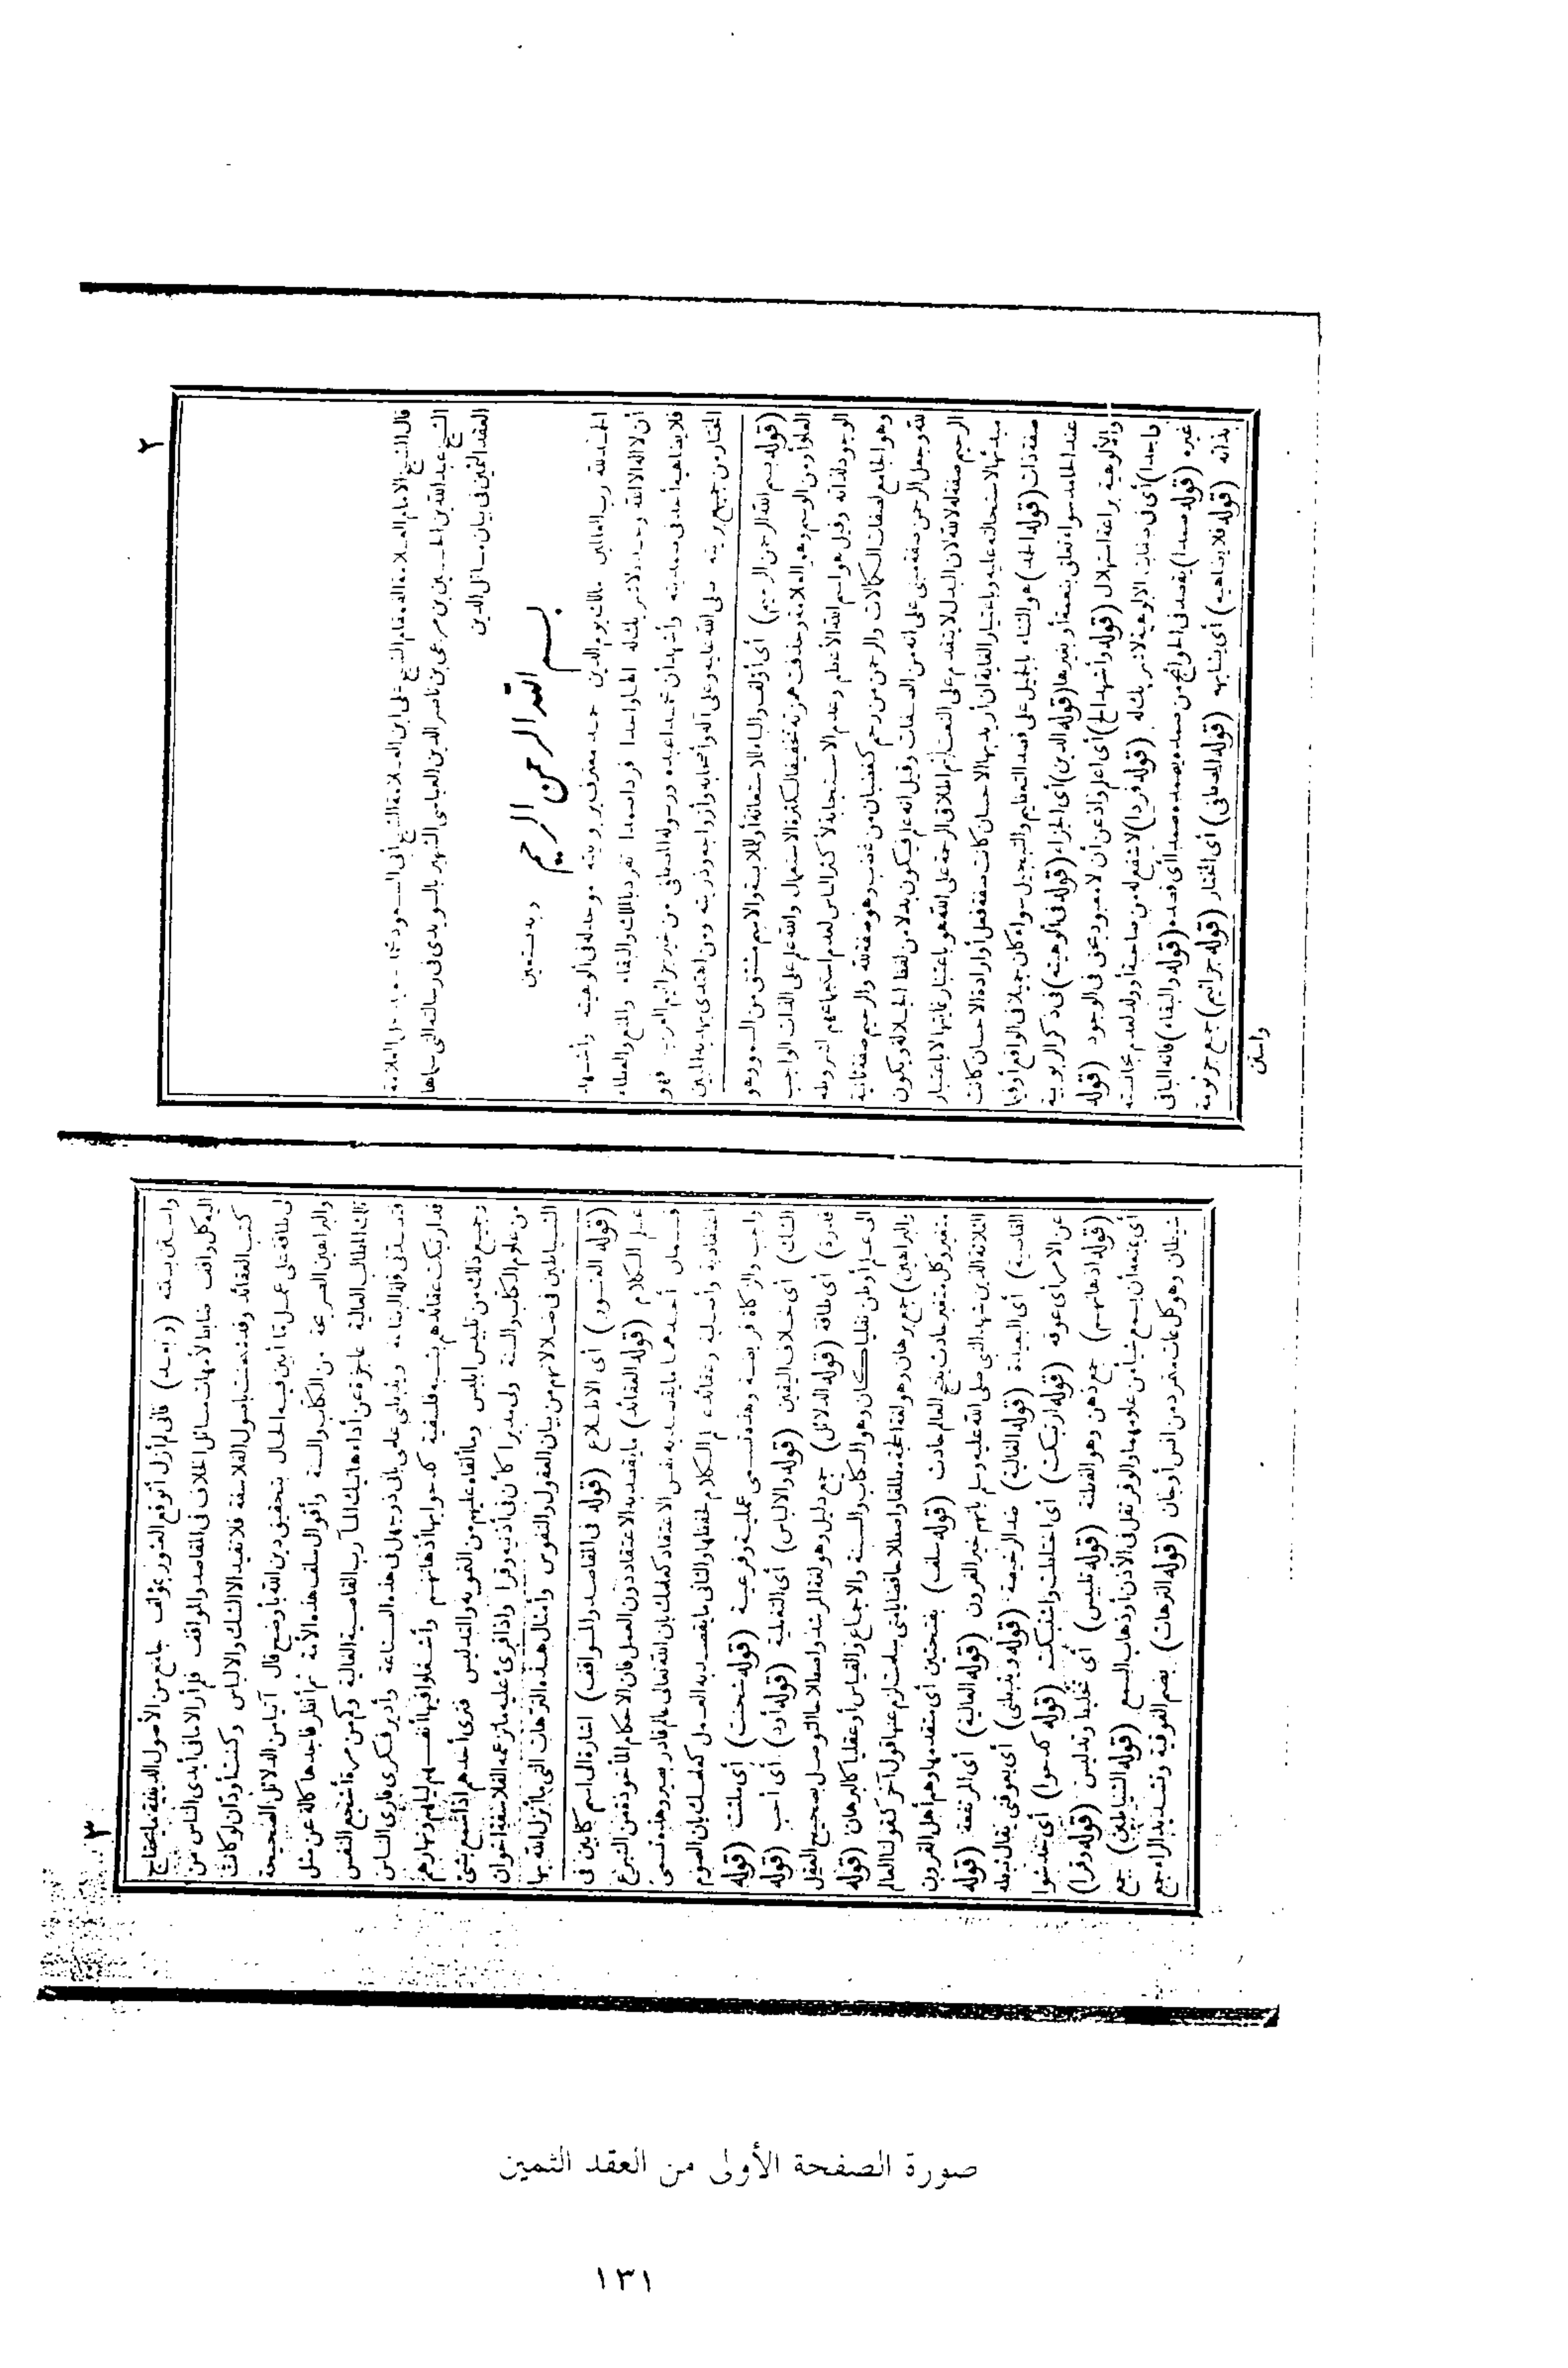 ٢
قال الشيخ الامام العلامة الفهامة الشيخ على ابن العلامة الشيخ أبى السعود محمد سعيد ابن العلامة
الشيخ عبد الله بن الحسين بن مرعى بن ناصر الدين العباسى الشهير بالسويدى فى رسالته التى سماها
العقد الثمين فى بيان مسائل الدين
بسم الله الرحمن الرحيم
وبه نستعين
الحمد لله رب العالمين مالك يوم الدين حمد معترف بربوبيته موحد له فى ألوهيته وأشهد
أن لا اله الا الله وحده لا شريك له الها واحدا فردا صمدا تفرد بالملك والبقاء والمنع والعطاء
فلا يضاهيه أحد فى صمديته وأشهد أن محمدا عبده ورسوله المصطفى من خير جراثيم العرب فهو
المختار من جميع بريته صلى الله عليه وعلى آله وأصحابه وأزواجه وذريته ومن اهتدى بهديه المبين
(قوله بسم الله الرحمن الرحيم) أى أؤلف والباء للاستعانة أو للملابسة والاسم مشتق من السمو وهو
العلو أو من الوسم وهو العلامة وحذفت همزته تخفيفا لكثرة الاستعمال والله علم على الذات الواجب
الوجود لذاته وقيل هو اسم الله الأعظم وعدم الاستجابة لأكثر الناس لعدم استجماعهم لشروطه
وهو الجامع لصفات الكمالات والرحمن من رحم كغضبان من غضب وهو صفة لله والرحيم صفة ثانية
لله وجعل الرحمن صفة مبنى على انه من الصفات وقيل انه علم فيكون بدلا من لفظ الجلالة ويكون
الرحيم صفة له لا لله لان البدل لا يتقدم على النعت ثم اطلاق الرحمة على الله هو باعتبار غايتها لا باعتبار
مبدئها لاستحالته عليه وباعتبار الغاية ان أريد بها الاحسان كانت صفة فعل أو ارادة الاحسان كانت
صفة ذات (قوله الحمد) هو الثناء بالجميل على قصد التعظيم والتبجيل سواء كان جميلا فى الواقع أو فيما
عند الحامد سواء تعلق بنعمة أو بغيرها (قوله الدين) أى الجزاء (قوله فى ألوهيته) فى ذكر الربوبية
والألوهية براعة استهلال (قوله وأشهد الخ) أى أعلم وأذعن أن لا معبود بحق فى الوجود (قوله
واحدا) أى فى صفات الالوهية لا شريك له (قوله فردا) لا شفع له من صاحبة أو ولد لعدم مجانسته
غيره (قوله صمدا) يقصد فى الحوائج من صمده يصمده صمدا أى قصده (قوله والبقاء) فانه الباقى
بذاته (قوله فلا يضاهيه) أى يشابهه (قوله المصطفى) أى المختار (قوله جراثيم) جمع جرثومة
واستن
٣
واستن بسنته (وبعد) فانى لم أزل أتوقع العثور بمؤلف جامع من الأصول الدينية ما يحتاج
اليه كل واقف ضابط لأمهات مسائل الخلاف فى المقاصد والمواقف فلم أر الا ما فى أيدى الناس من
كتب العقائد وقد شحنت بأصول الفلاسفة فلا تفيد الا الشك والالباس وكنت أود أن لو كانت
لى طاقة على عمل ما أبين فيه الحال بتحقيق دين الله بأوضح قال آتيا من الدلائل الصحيحة
والبراهين الصريحة من الكتاب والسنة وأقوال سلف هذه الأمة ثم أنظر فأجدها كالة عن مثل
تلك المطالب العالية عاجزة عن أداء هاتيك المآرب القاصية الغالية وكم من مرة أشجع النفس
فتصدنى قلة البضاعة ويثبطنى على بانى ذو جهل فى هذه الصناعة وأدير فكرى فأرى الناس
قد ارتبكت عقائدهم بشبه فلسفية كدحوا بها أذهانهم وأشغلوا فيها أنفسهم ليلهم ونهارهم
وجميع ذلك من تلبيس ابليس وما ألقاه عليهم من التمويه والتدليس فترى أحدهم اذا سمع بشئ
من علوم الكتاب والسنة ولى مدبرا كأن فى أذنيه وقرا واذا قرئ عليه ما زعمه الفلاسفة اخوان
الشياطين فى ضلالاتهم من بيان العقول والنفوس وأمثال هذه الترهات التى ما أنزل الله بها
(قوله العثور) أى الاطلاع (قوله فى المقاصد والمواقف) اشارة الى اسم كتابين فى
علم الكلام (قوله العقائد) ما يقصد به الاعتقاد دون العمل فان الاحكام المأخوذة من الشرع
قسمان أحدهما ما يقصد به نفس الاعتقاد كعلمك بان الله تعالى عالم قادر بصير وهذه تسمى
اعتقادية وأصلية وعقائد وعلم الكلام لحفظها والثانى ما يقصد به العمل كعلمك بان الصوم
واجب والزكاة فريضة وهذه تسمى عملية وفرعية (قوله شحنت) أى ملئت (قوله
الشك) أى خلاف اليقين (قوله والالباس) أى التغطية (قوله أود) أى أحب (قوله
قدرة) أى طاقة (قوله الدلائل) جمع دليل وهو لغة المرشد واصطلاحا التوصل بصحيح العقل
الى علم أو ظن نقليا كان وهو الكتاب والسنة والاجماع والقياس أو عقليا كالبرهان (قوله
والبراهين) جمع برهان وهو لغة الحجة مطلقا واصطلاحا قضايا متى سلمت لزم عنها قول آخر كقولنا العالم
متغير وكل متغير حادث ينتج العالم حادث (قوله سلف) بفتحتين أى متقدمها وهم أهل القرون
الثلاثة الذين شهد النبى صلى الله عليه وسلم بأنهم خير القرون (قوله العالية) أى المرتفعة (قوله
القاصية) أى البعيدة (قوله الغالية) ضد الرخيصة (قوله ويثبطنى) أى يعوقنى يقال ثبطه
عن الامر أى عوقه (قوله ارتبكت) أى اختلطت واشتبكت (قوله كدحوا) أى خدشوا
(قوله أذهانهم) جمع ذهن وهو الفطنة (قوله تلبيس) أى تخليط وتدليس (قوله وقرا)
أى يمنعه أن يسمع شيأ من علومهما والوقر ثقل فى الأذن أو ذهاب السمع (قوله الشياطين) جمع
شيطان وهو كل عات متمرد من انس أو جان (قوله الترهات) بضم الفوقية وتشديد الراء جمع
صورة الصفحة الأولى من العقد الثمين
١٣١